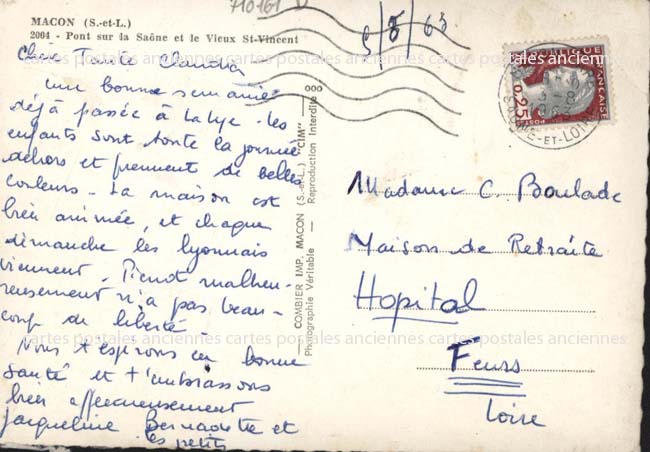 710161
MACON (S.-et-L.)
2004 - Pont sur la Saône et le Vieux St-Vincent
5/8/63
Chère Tante Claudia
une bonne semaine
déjà passée à Laye. Les
enfants sont toute la journée
dehors et prennent de belles
couleurs. La maison est
bien animée, et chaque
dimanche les lyonnais
viennent. Pierrot malheu-
reusement n'a pas beau-
coup de liberté
Nous t'espérons en bonne
santé et t'embrassons
bien affectueusement
Jacqueline Bernadette et
les petits
COMBIER IMP. MACON (S.-et-L.) "CIM"
Photographie Véritable - Reproduction Interdite
REPUBLIQUE FRANÇAISE
0,25
POSTES
SAONE-ET-LOIRE
Madame C. Boulade
Maison de Retraite
Hopital
Feurs
Loire
cartes postales anciennes cartes postales anciennes cartes postales anciennes
cartes postales anciennes cartes postales anciennes cartes postales anciennes